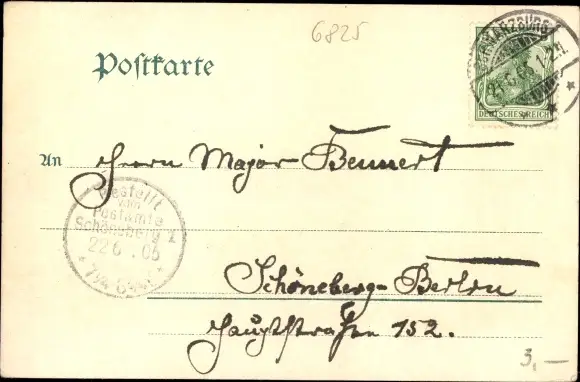 6825
Postkarte
SCHWARZBURG
21.6.05.1-2N.
DEUTSCHES REICH
An Herrn Major Bennert
Bestellt
vom
Postamte 2
Schöneberg
22 6 .05
Schöneberg-Berlin
Hauptstraße 152.
3,—